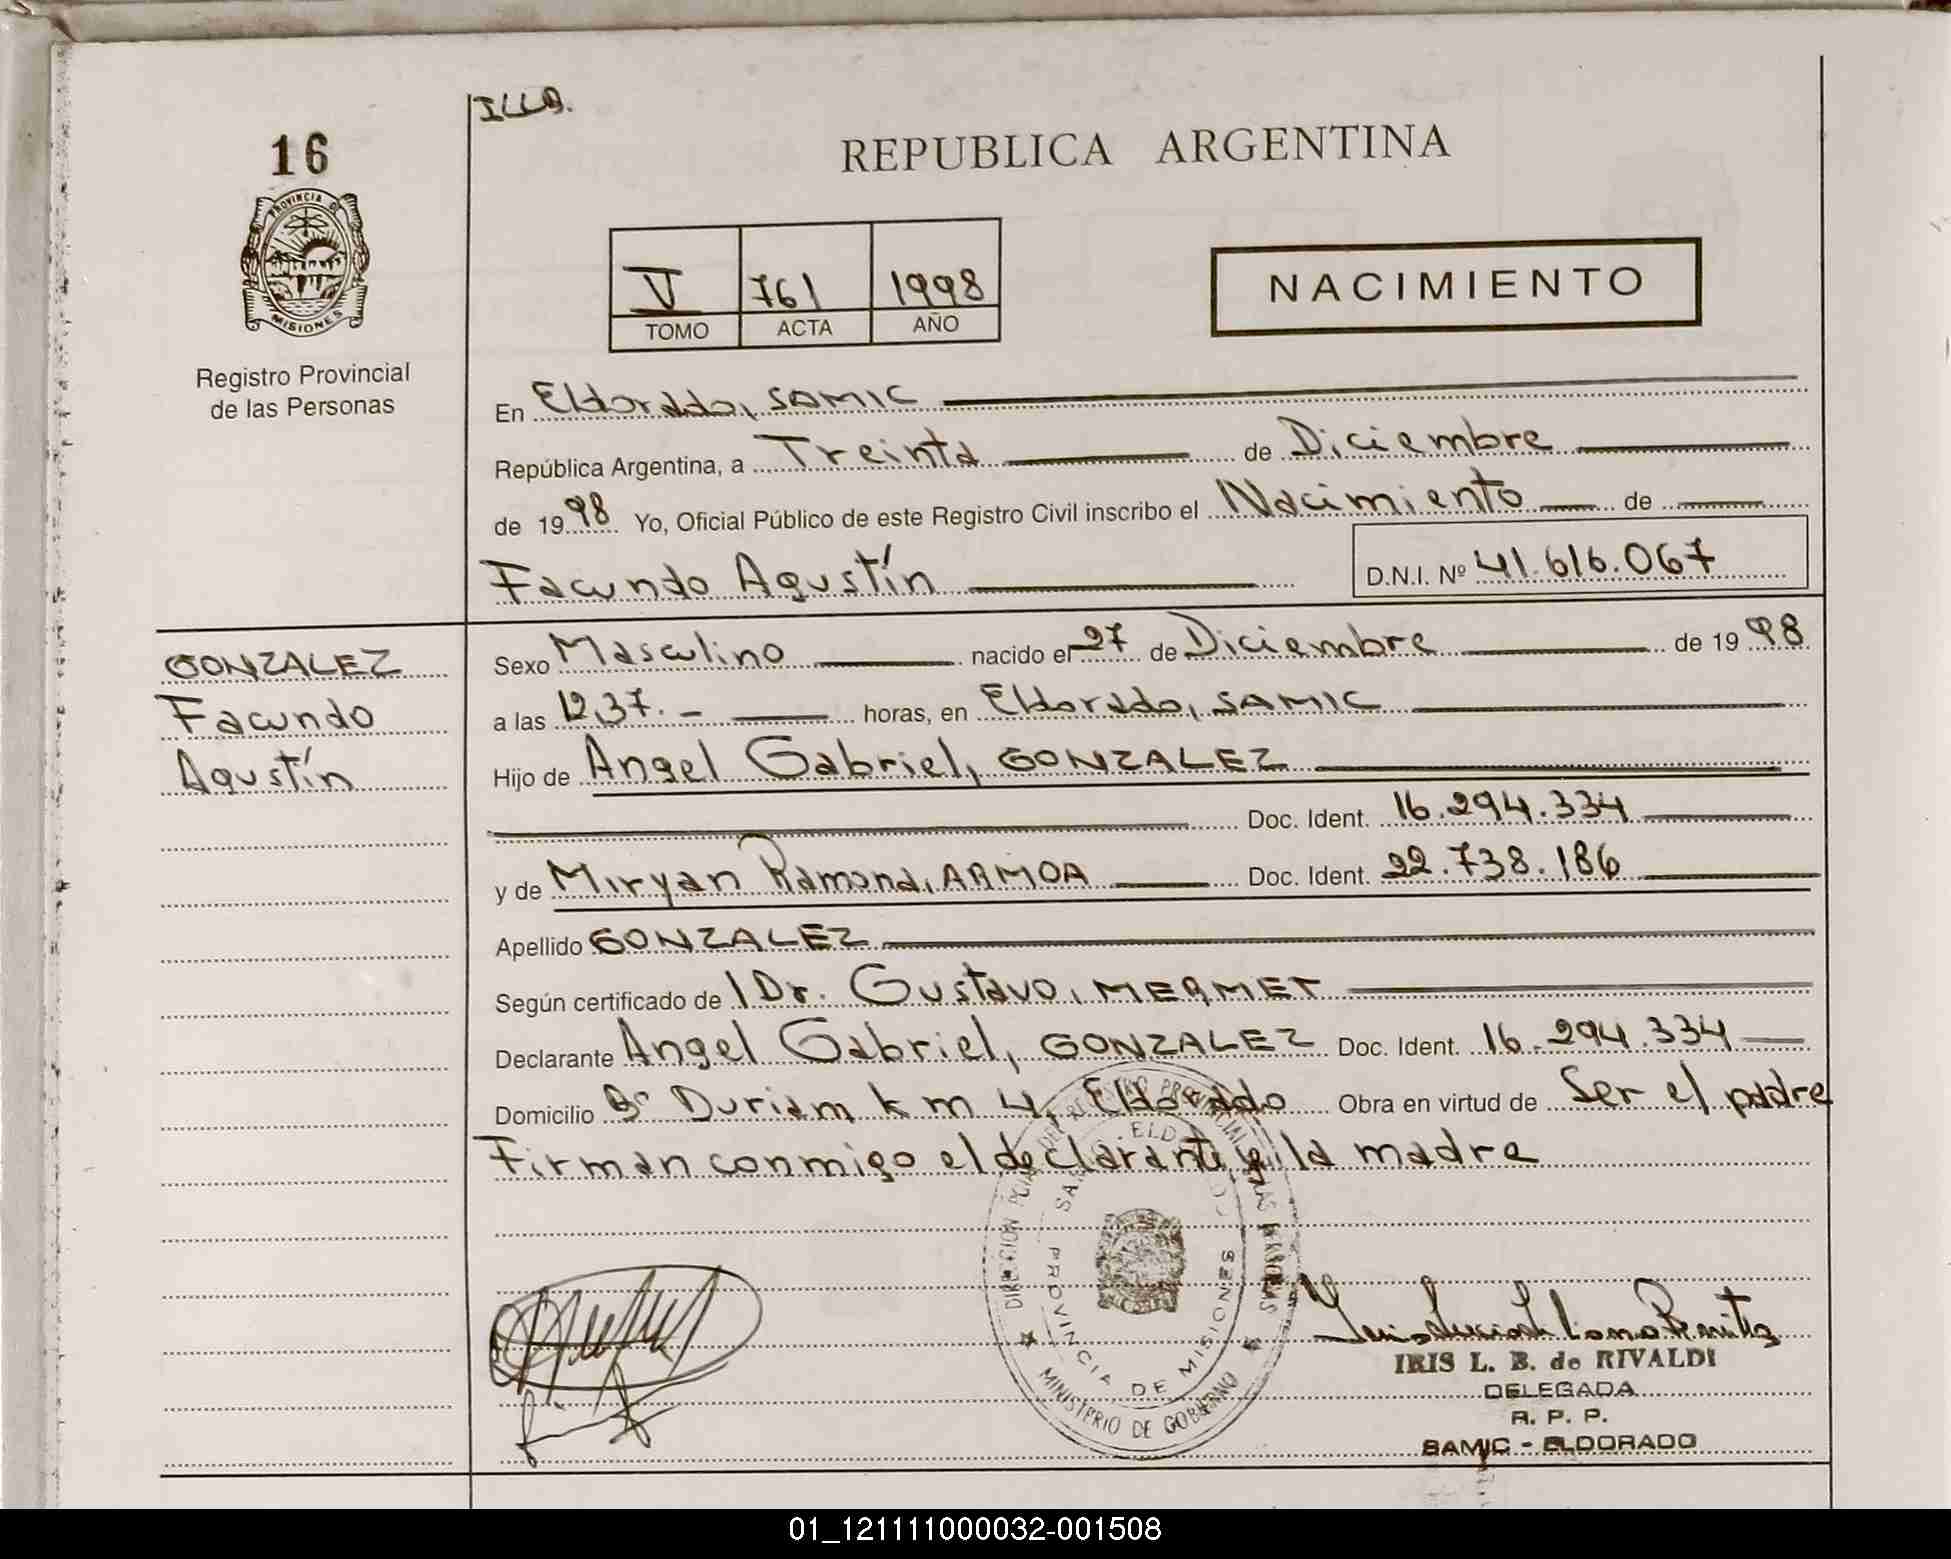 ILLA.
16
REPUBLICA ARGENTINA
PROVINCIA D
MISIONES
Registro Provincial
de las Personas
V 761 1998
TOMO ACTA AÑO
NACIMIENTO
En Eldorado, SAMIC
República Argentina, a Treinta de Diciembre
de 1998 Yo, Oficial Público de este Registro Civil inscribo el Nacimiento de
Facundo Agustín D.N.I. Nº 41.616.067
GONZALEZ
Facundo
Agustín
Sexo Masculino nacido el 27 de Diciembre de 1998
a las 12,37.- horas, en Eldorado, SAMIC
Hijo de Angel Gabriel, GONZALEZ
Doc. Ident. 16.294.334
y de Miryan Ramona, ARMOA Doc. Ident. 22.738.186
Apellido GONZALEZ
Según certificado de 1 Dr. Gustavo, MERMET
Declarante Angel Gabriel, GONZALEZ Doc. Ident. 16.294.334
Domicilio Bº Duriam, km 4, Eldorado Obra en virtud de Ser el padre
Firman conmigo el declarante y la madre
PROVINCIA DE MISIONES
MINISTERIO DE GOBIERNO
IRIS L. B. de RIVALDI
DELEGADA
R. P. P.
SAMIC - ELDORADO
01_121111000032-001508